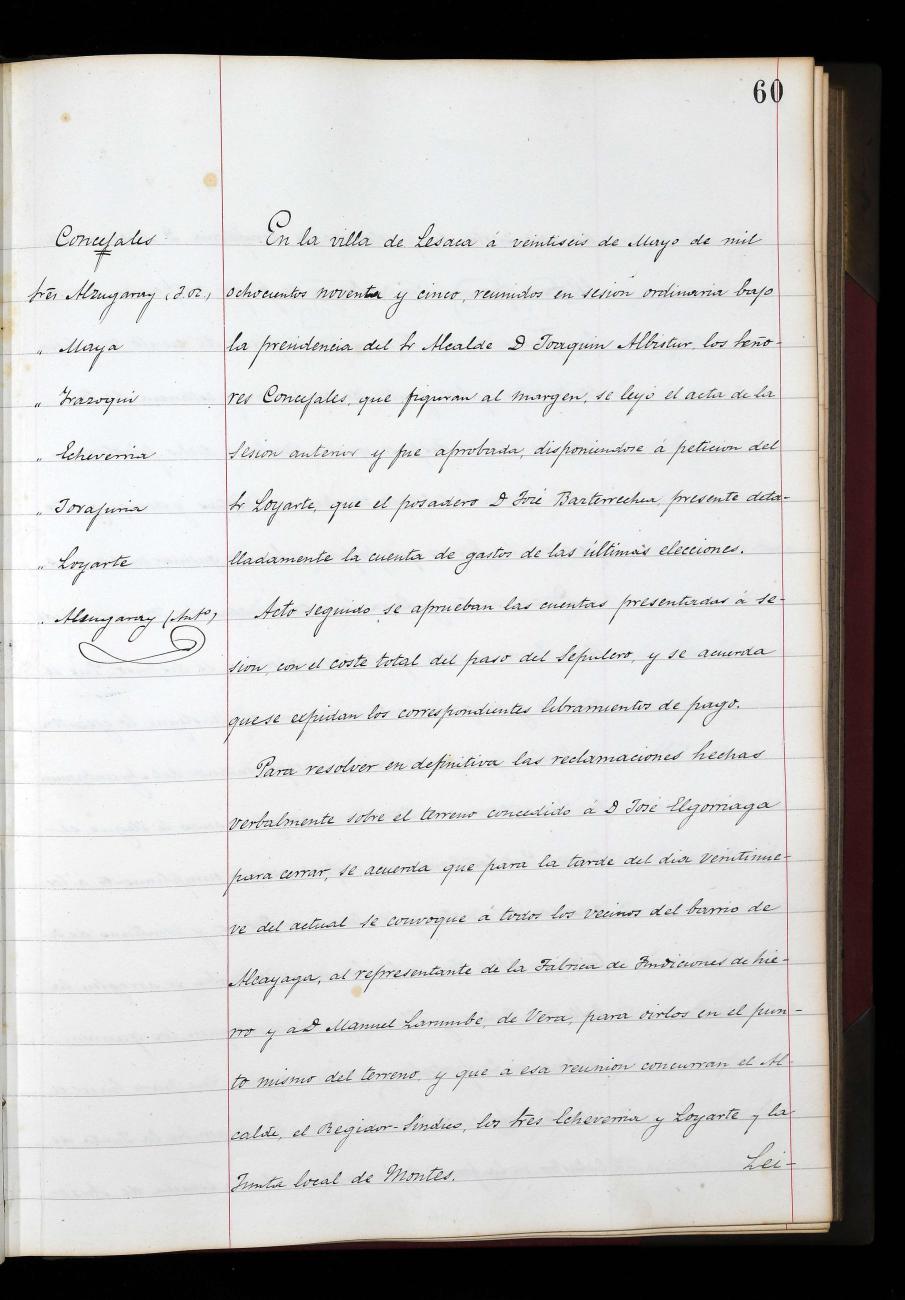 60
Concejales
Sres Alzugaray (J. M.)
" Maya
" Irazoqui
" Echeverria
" Torajuria
" Loyarte
" Alzugaray (Ant.º)
En la villa de Lesaca á veintiseis de Mayo de mil
ochocientos noventa y cinco, reunidos en sesión ordinaria bajo
la presidencia del Sr Alcalde D Joaquin Albistur, los Seño-
res Concejales, que figuran al margen, se leyó el acta de la
sesion anterior y fue aprobada, disponiendose á peticion del
Sr Loyarte, que el posadero D José Barterrechea, presente deta-
lladamente la cuenta de gastos de las últimas elecciones.
Acto seguido se aprueban las cuentas presentadas á se-
sion, con el coste total del paso del Sepulcro, y se acuerda
que se expidan los correspondientes libramientos de pago.
Para resolver en definitiva las reclamaciones hechas
verbalmente sobre el terreno concedido á D José Elgorriaga
para cerrar, se acuerda que para la tarde del dia veintinue-
ve del actual se convoque á todos los vecinos del barrio de
Alcayaga, al representante de la Fabrica de Fundiciones de hie-
rro y a D Manuel Larumbe, de Vera, para oirlos en el pun-
to mismo del terreno, y que á esa reunion concurran el Al-
calde, el Regidor-Sindico, los Sres Echeverria y Loyarte y la
Junta local de Montes.
Lei-